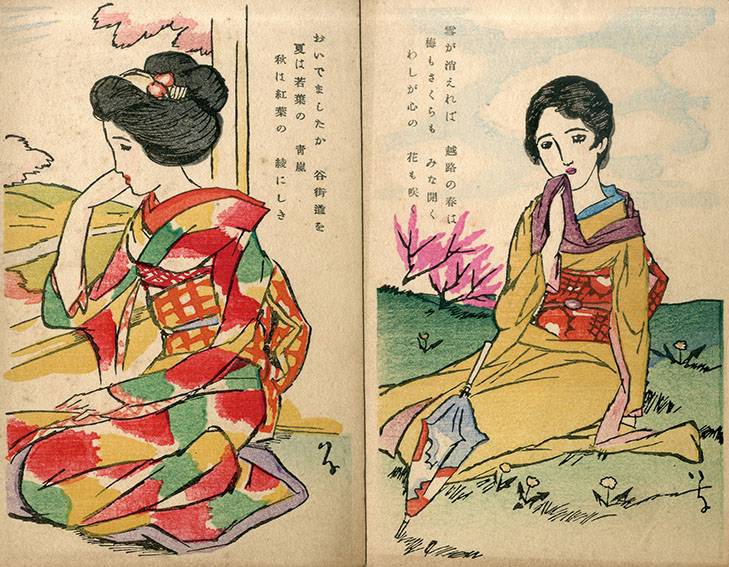 雪が消えれば 越路の春は
梅もさくらも みな開く
わしが心の 花も咲く
おいでましたか 谷街道を
夏は若葉の 青嵐
秋は紅葉の 綾にしき